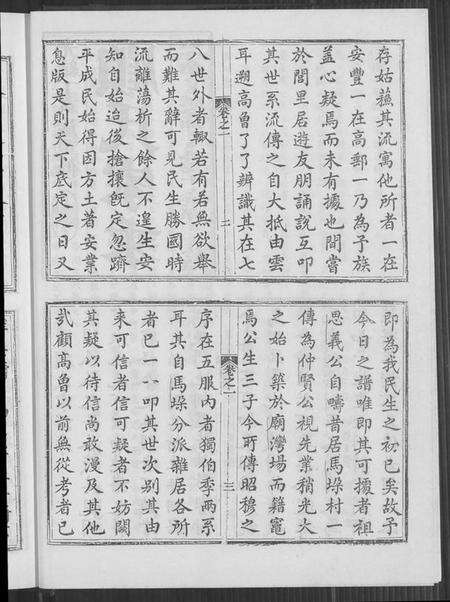 存姑蘓其流寓他所者一在
安豐一在高郵一乃為予族
葢心疑焉而未有據也間嘗
於閭里居遊友朋誦說互叩
其世系流傳之自大抵由雲
耳遡高曾了了辨識其在七
卷之一
二
八世外者輙若有若無欲舉
而難其辭可見民生勝國時
流離蕩析之餘人不遑生安
知自始迨後搶攘旣定忽躋
平成民始得因方土著安業
息版是則天下底定之日又
即為我民生之初已矣故予
今日之譜唯即其可據者祖
思義公自疇昔居馬垛村一
傳為仲賢公視先業稍光大
之始卜築於廟灣場而籍竈
焉公生三子今所傳昭穆之
卷之一
三
序在五服內者獨伯季兩系
耳其自馬垛分派雜居各所
者已一一叩其世次別其由
來可信者信可疑者不妨闕
其疑以待信尚敢漫及其他
㦲顧高曾以前無從考者已